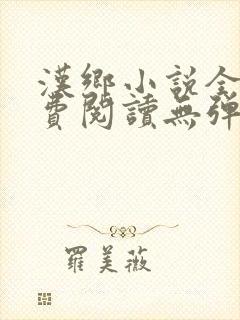 漢鄉小說全
費閱讀無彈
羅美薇